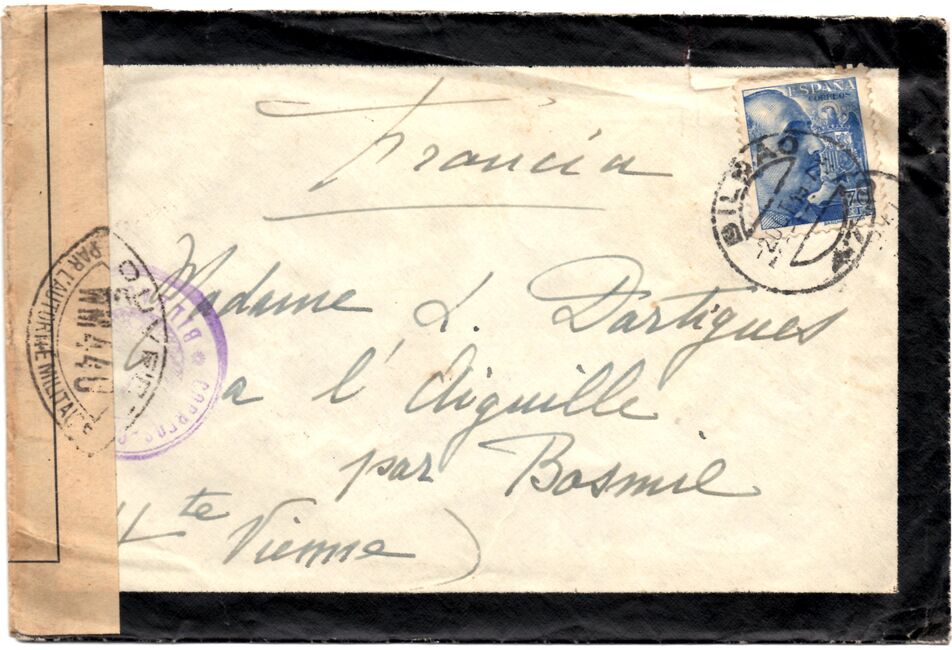 Francia
Madame L. Dartigues
a l'Aiguille
par Bosmie
Hte Vienne)
ESPAÑA
CORREOS
BILBAO
OUVERT
PAR L'AUTORITÉ MILITAIRE
WM440
CORREOS